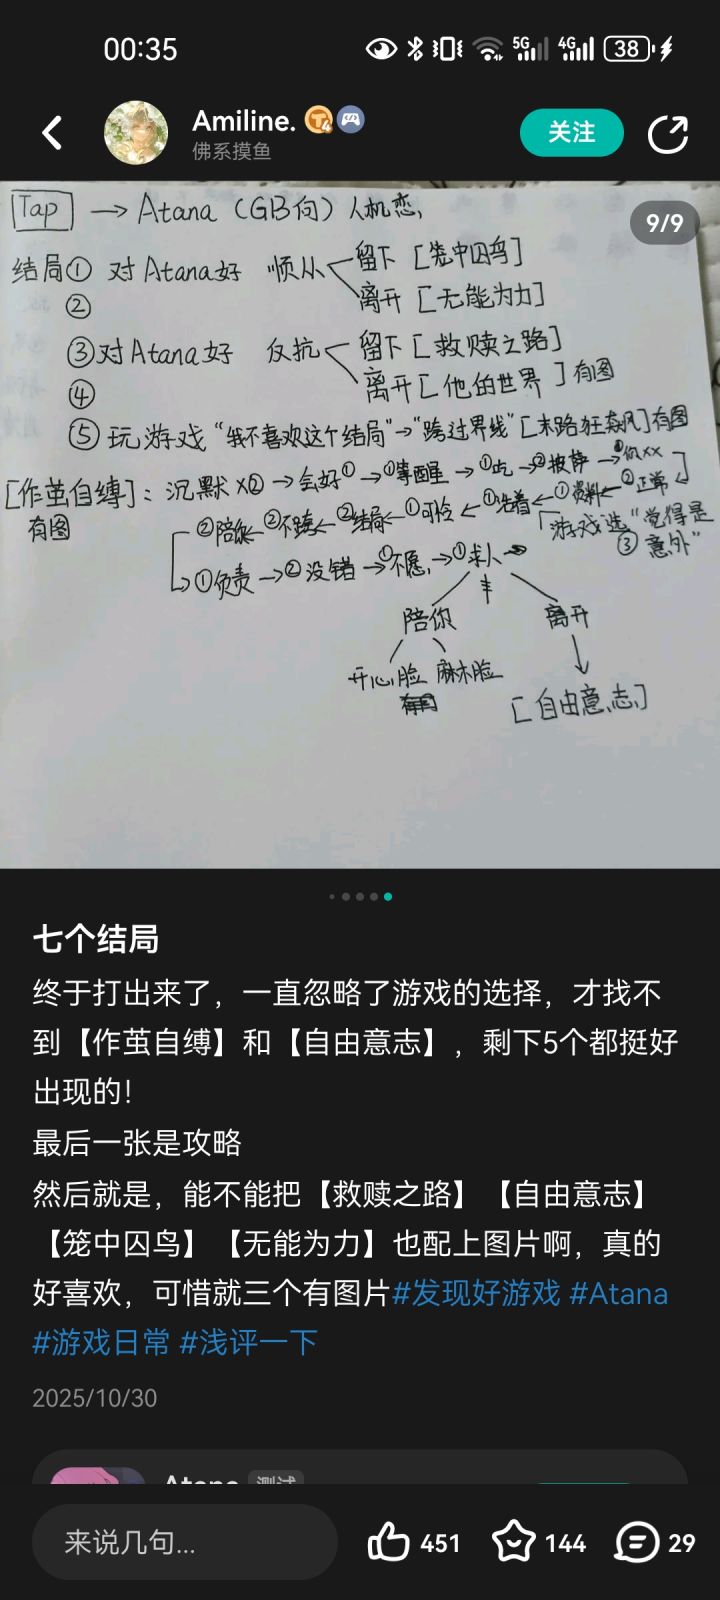 00:35
5G 4G 38
Amiline.
佛系摸鱼
关注
9/9
Tap → Atana（GB向）人机恋，
结局① 对Atana好 顺从 留下［笼中囚鸟］
② 离开［无能为力］
③对Atana好 反抗 留下［救赎之路］
④ 离开［他的世界］有图
⑤ 玩游戏“我不喜欢这个结局”→“跨过界线”［末路狂飙］有图
［作茧自缚］：沉默×② → 会好① → ①等醒 → ①吃 → ②披萨 →
有图
②正常 ①资料 ①先着 ①可怜 ②结局 ②不 ②陪你
游戏选“觉得是
③ 意外”
①负责 → ②没错 → ①不愿 → ①求人
陪你 离开
开心脸 麻木脸
有图
［自由意志］
七个结局
终于打出来了，一直忽略了游戏的选择，才找不
到【作茧自缚】和【自由意志】，剩下5个都挺好
出现的！
最后一张是攻略
然后就是，能不能把【救赎之路】【自由意志】
【笼中囚鸟】【无能为力】也配上图片啊，真的
好喜欢，可惜就三个有图片#发现好游戏 #Atana
#游戏日常 #浅评一下
2025/10/30
Atana 测试
来说几句...
451
144
29